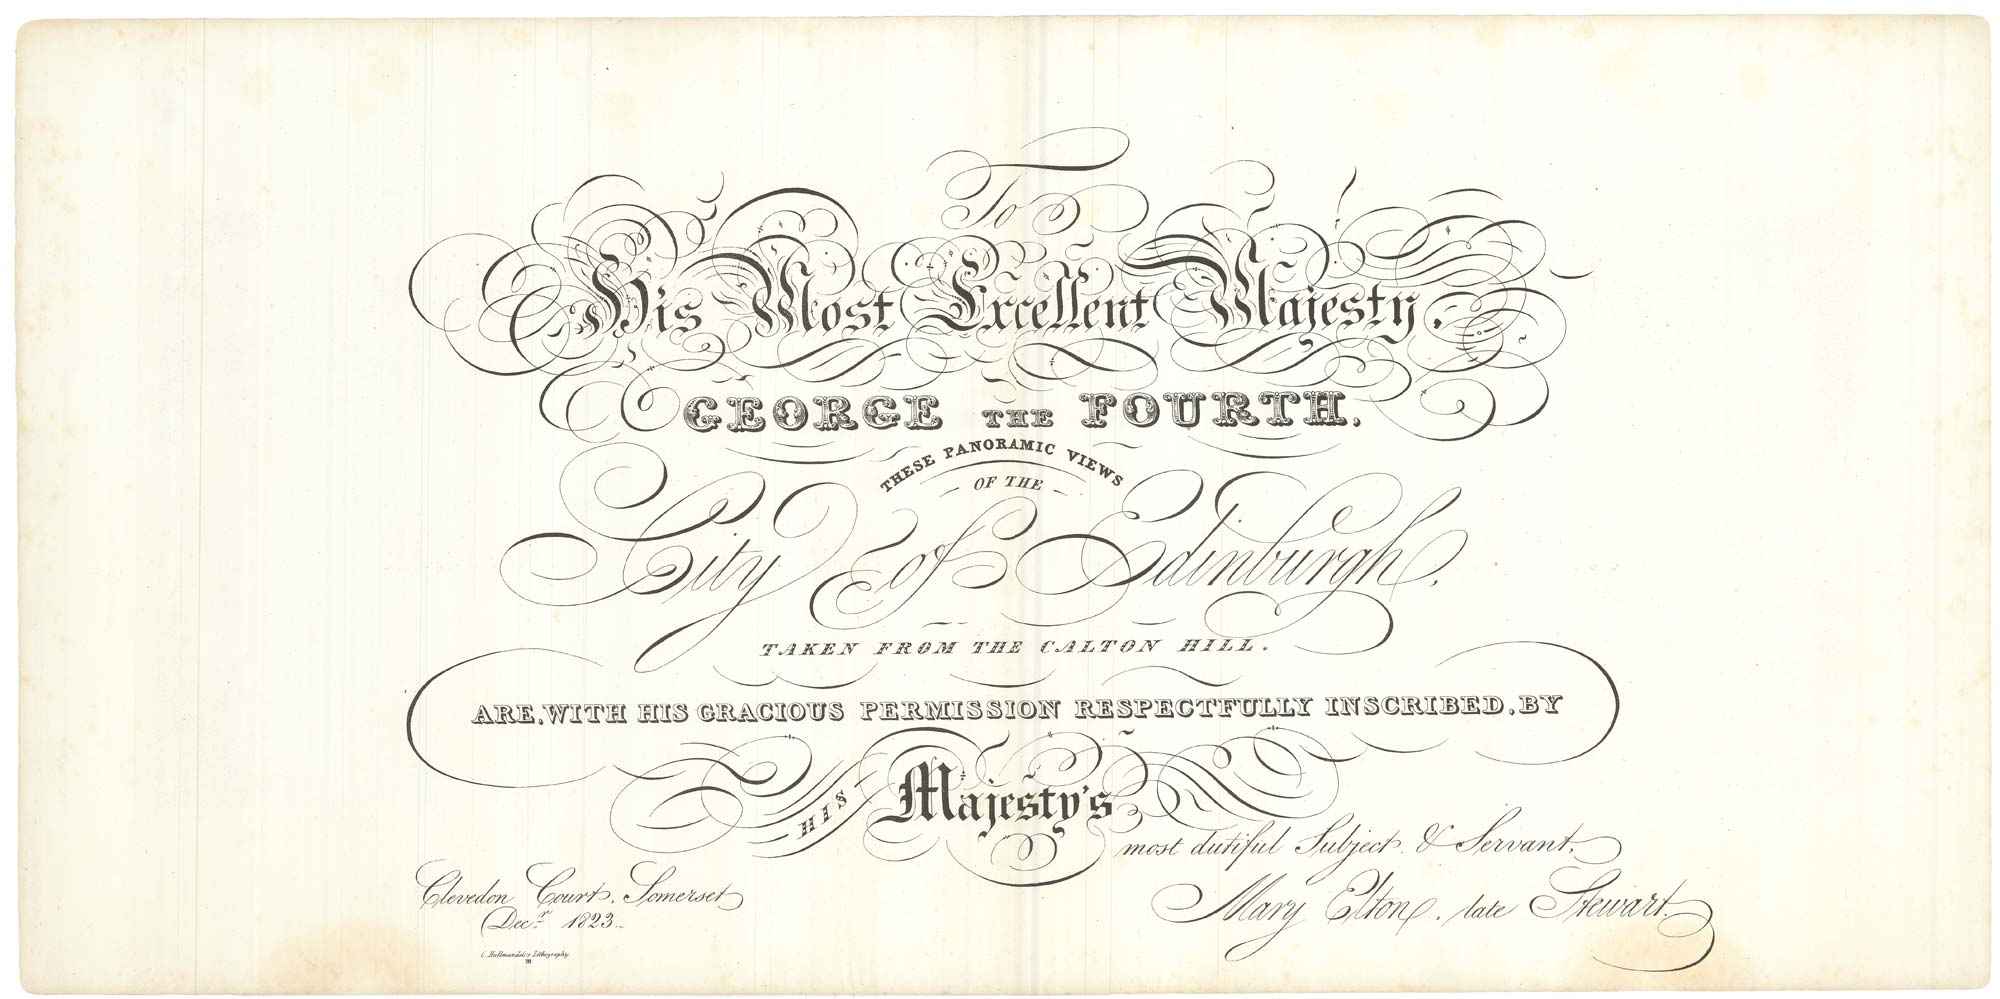 To
His Most Excellent Majesty,
GEORGE THE FOURTH.
THESE PANORAMIC VIEWS
OF THE
City of Edinburgh.
TAKEN FROM THE CALTON HILL.
ARE, WITH HIS GRACIOUS PERMISSION RESPECTFULLY INSCRIBED, BY
HIS Majesty's
most dutiful Subject & Servant,
Mary Elton, late Stewart.
Clevedon Court, Somerset
Decr. 1823.
C. Hullmandel's Lithography